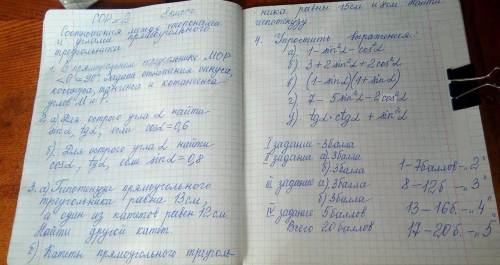 СОР №2
Соотношения между сторонами
и углами прямоугольного
треугольника
1. В прямоугольном треугольнике МОР
∠О = 90° Задать отношения синуса,
косинуса, тангенса и котангенса
углов М и Р.
2. а) Для острого угла α найти
sinα, tgα, если cosα = 0,6
б) Для острого угла α найти
cosα, tgα, если sinα = 0,8
3. а) Гипотенуза прямоугольного
треугольника равна 13см,
а один из катетов равен 12см.
Найти другой катет.
б) Катеты прямоугольного треуголь-
ника равны 15см и 8см. Найти
гипотенузу
4. Упростить выражения:
а) 1 - sin²α - cos²α
б) 3 + 2sin²α + 2cos²α
в) (1 - sinα)(1 + sinα)
г) 7 - 5sin²α - 2cos²α
д) tgα · ctgα + sin²α
I задание - 3 балла
II задание а) 3 балла
б) 3 балла
III задание а) 3 балла
б) 3 балла
IV задание 5 баллов
Всего 20 баллов
1 - 7 баллов - „2"
8 - 12 б. - „3"
13 - 16 б. - „4"
17 - 20 б. - „5"